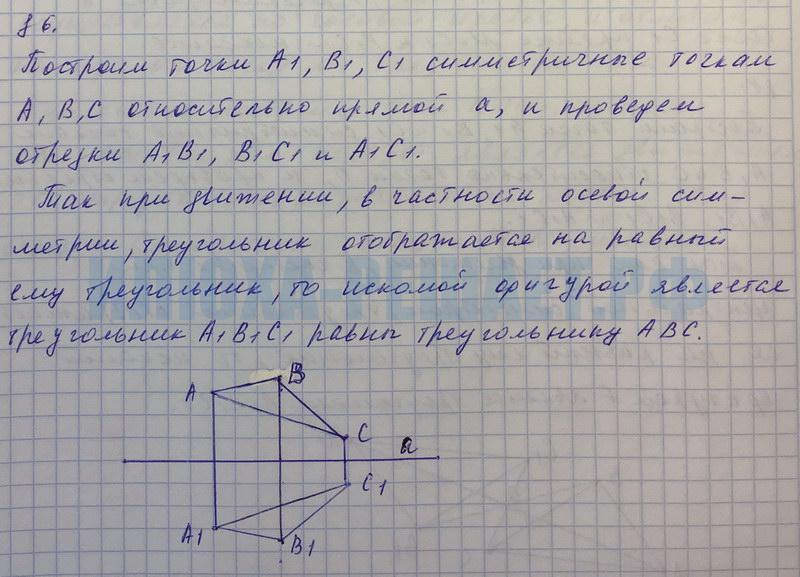 § 6.
Построим точки A1, B1, C1 симметричные точкам
A, B, C относительно прямой a, и проведем
отрезки A1B1, B1C1 и A1C1.
Так при движении, в частности осевой сим-
метрии, треугольник отображается на равный
ему треугольник, то искомой фигурой является
треугольник A1B1C1 равны треугольнику ABC.
B
A
C
a
C1
A1
B1